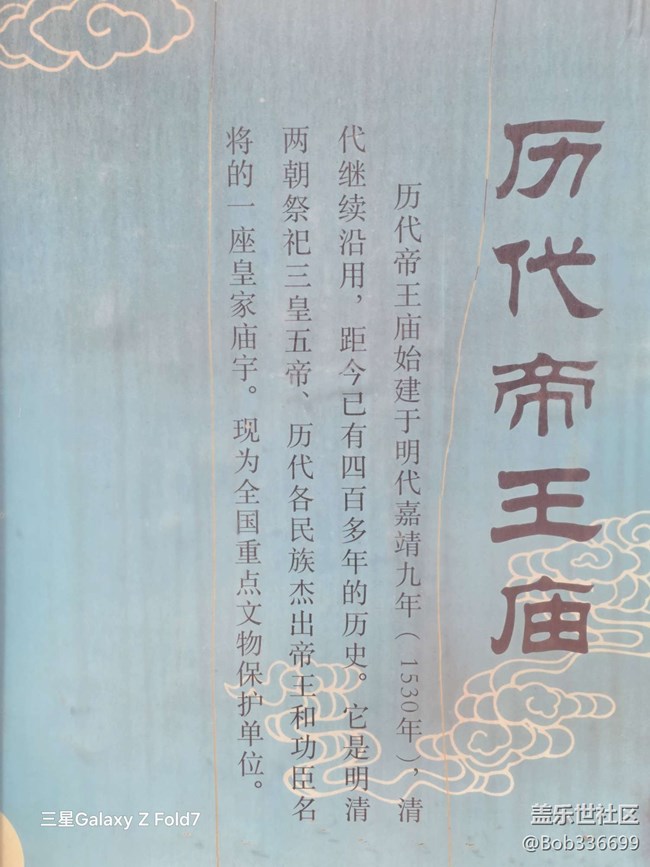 历代帝王庙
历代帝王庙始建于明代嘉靖九年（1530年），清
代继续沿用，距今已有四百多年的历史。它是明清
两朝祭祀三皇五帝、历代各民族杰出帝王和功臣名
将的一座皇家庙宇。现为全国重点文物保护单位。
三星Galaxy Z Fold7
盖乐世社区
@Bob336699